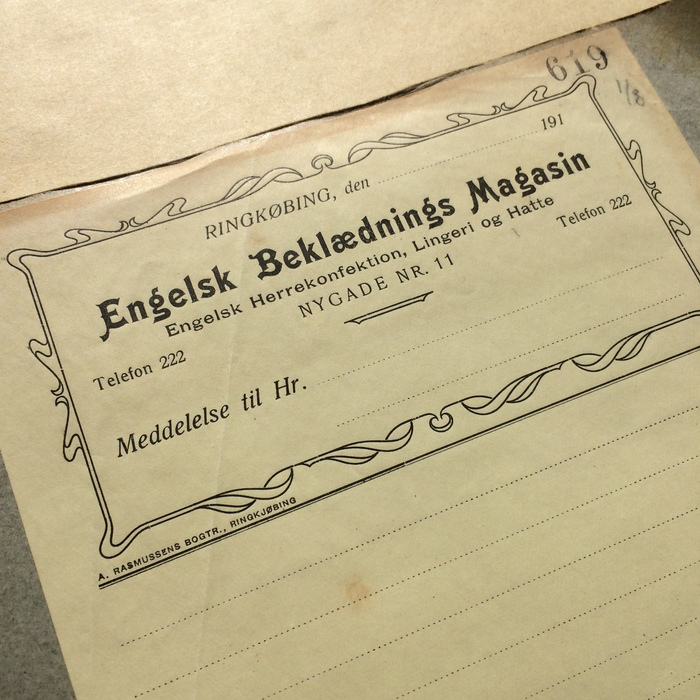 619
1/8
RINGKØBING, den 191
Engelsk Beklædnings Magasin
Engelsk Herrekonfektion, Lingeri og Hatte
NYGADE NR. 11
Telefon 222
Telefon 222
Meddelelse til Hr.
A. RASMUSSENS BOGTR., RINGKJØBING